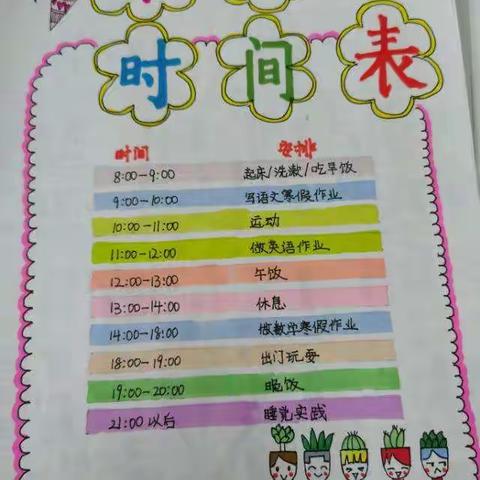 时间表
时间 安排
8:00-9:00 起床/洗漱/吃早饭
9:00-10:00 写语文寒假作业
10:00-11:00 运动
11:00-12:00 做英语作业
12:00-13:00 午饭
13:00-14:00 休息
14:00-18:00 做数学寒假作业
18:00-19:00 出门玩耍
19:00-20:00 晚饭
21:00以后 睡觉实践